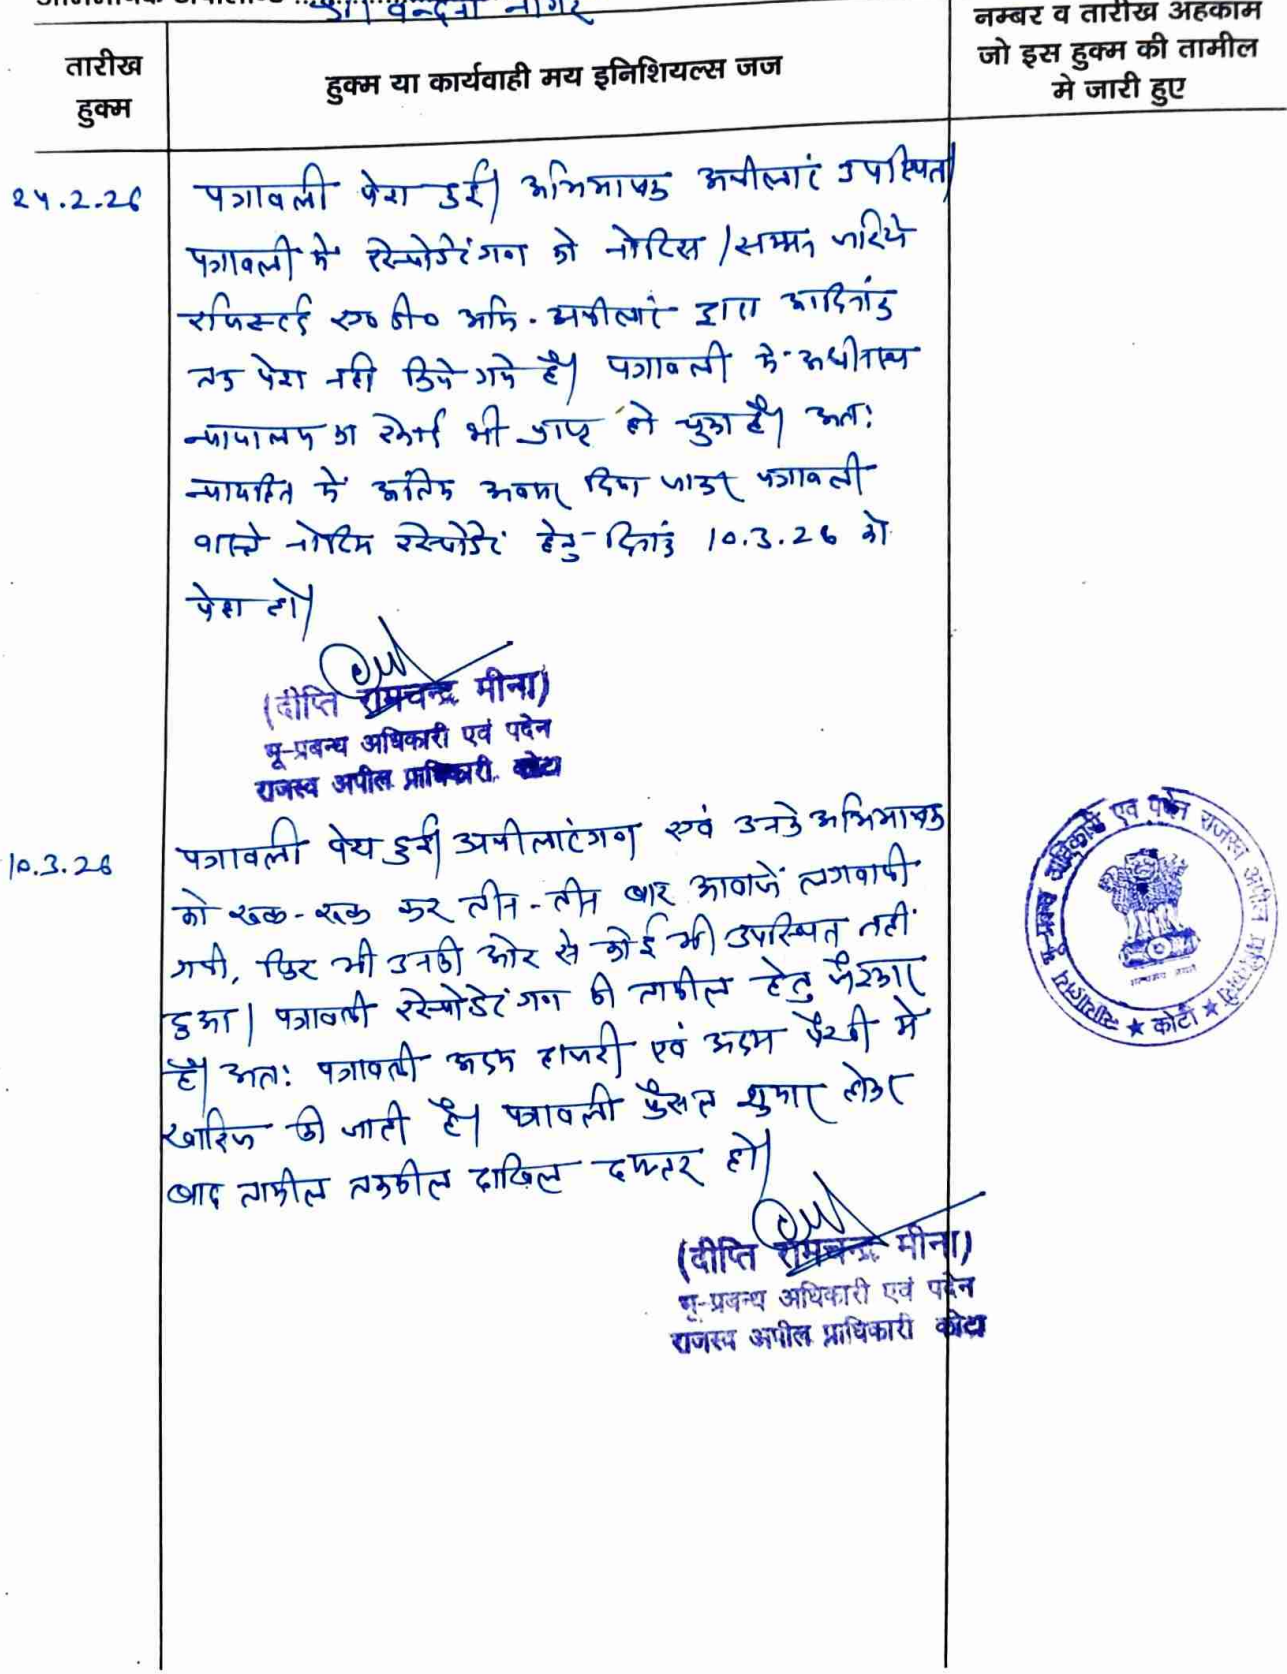 वन्दना नागर
नम्बर व तारीख अहकाम
जो इस हुक्म की तामील
मे जारी हुए
तारीख
हुक्म
हुक्म या कार्यवाही मय इनिशियल्स जज
24.2.26
पत्रावली पेश हुई। अभिभाषक अपीलांट उपस्थित।
पत्रावली में रेस्पोडेंटगण को नोटिस/सम्मन जरिये
रजिस्टर्ड ए०डी० अभि. अपीलांट द्वारा आदिनांक
तक पेश नही किये गये है। पत्रावली मे अधीनस्थ
न्यायालय का रेकार्ड भी प्राप्त हो चुका है। अतः
न्यायहित में अंतिम अवसर दिया जाकर पत्रावली
वास्ते नोटिस रेस्पोडेंट हेतु दिनांक 10.3.26 को
पेश हो।
(दीप्ति रामचन्द्र मीना)
भू-प्रबन्ध अधिकारी एवं पदेन
राजस्व अपील प्राधिकारी, कोटा
10.3.26
पत्रावली पेश हुई। अपीलांटगण एवं उनके अभिभाषक
को रूक-रूक कर तीन-तीन बार आवाजें लगवायी
गयी, फिर भी उनकी ओर से कोई भी उपस्थित नहीं
हुआ। पत्रावली रेस्पोडेंटगण की तामील हेतु
है। अतः पत्रावली अदम हाजरी एवं अदम पैरवी में
खारिज की जाती है। पत्रावली फैसल शुमार होकर
बाद तामील तकमील दाखिल दफ्तर हो।
(दीप्ति रामचन्द्र मीना)
भू-प्रबन्ध अधिकारी एवं पदेन
राजस्व अपील प्राधिकारी कोटा
न्यायालय भू-प्रबन्ध अधिकारी एवं पदेन राजस्व अपील प्राधिकारी
★ कोटा ★